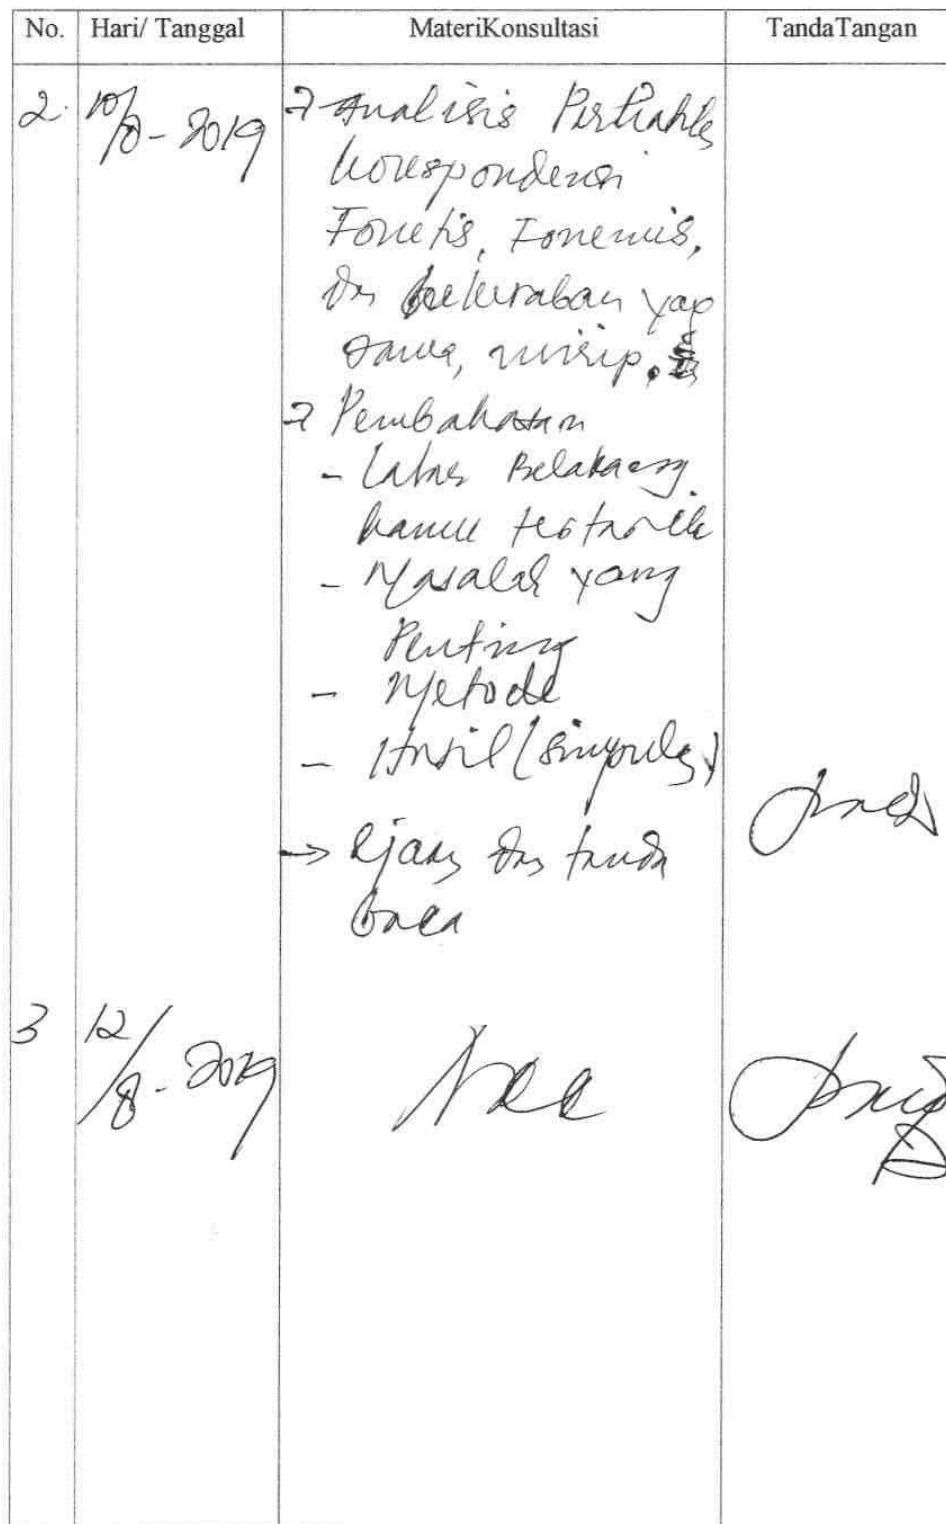 No. Hari/ Tanggal MateriKonsultasi TandaTangan
2. 10/8-2019 → Analisis Perhatikan
korespondensi
Fonetis, Fonemis,
dan kekerabatan yang
sama, mirip.
→ Pembahasan
- Latar Belakang
kamu tertarik
- Masalah yang
Penting
- Metode
- Hasil (simpulan)
→ Ejaan dan tanda
baca
3 12/8-2019 Acc